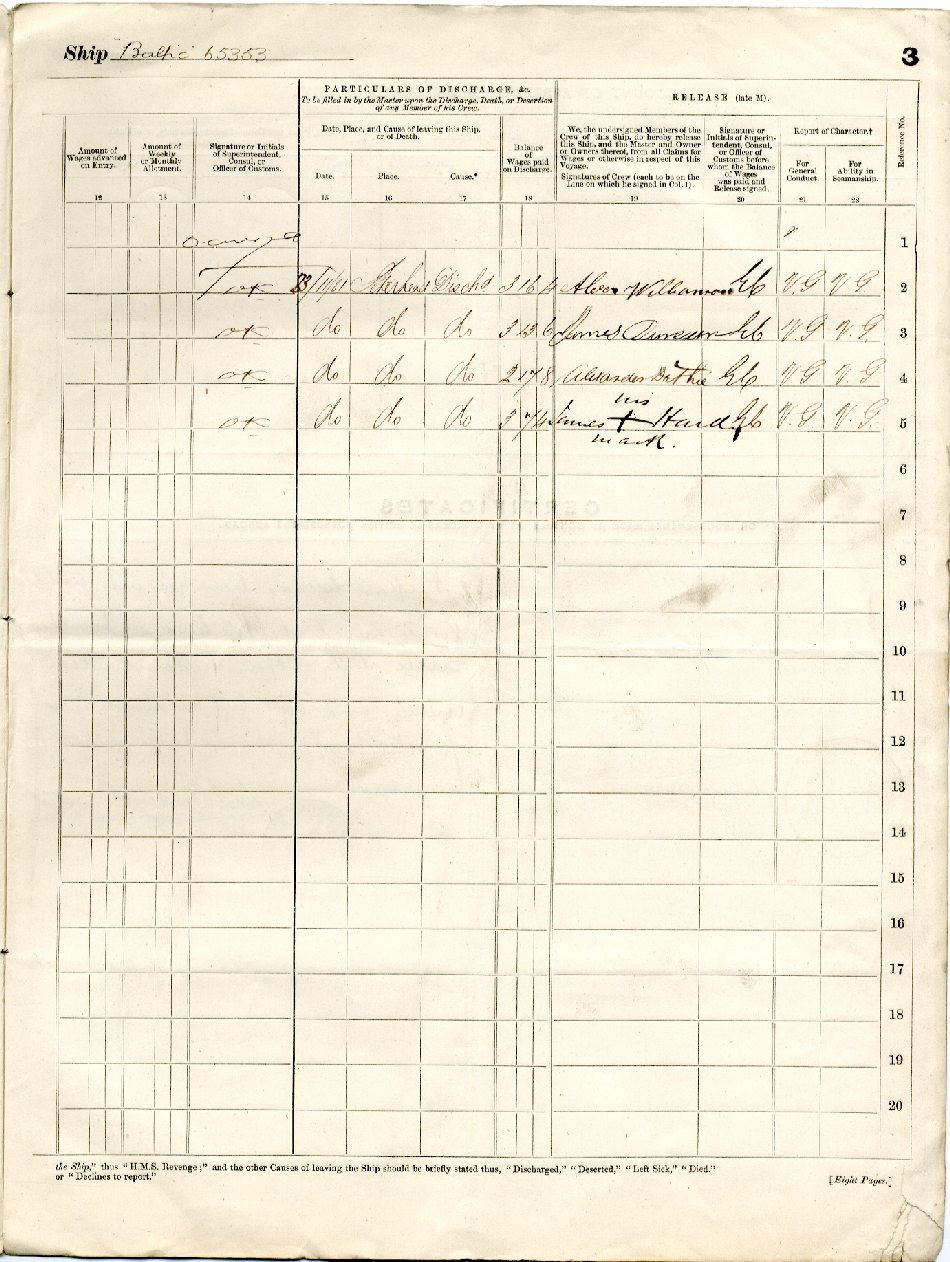 Ship Baltic 65353
3
PARTICULARS OF DISCHARGE, &c.
To be filled in by the Master upon the Discharge, Death, or Desertion
of any Member of his Crew.
RELEASE (late M).
Reference No.
Amount of
Wages advanced
on Entry.
Amount of
Weekly
or Monthly
Allotment.
Signature or Initials
of Superintendent,
Consul, or
Officer of Customs.
Date, Place, and Cause of leaving this Ship,
or of Death.
Date.
Place.
Cause.*
Balance
of
Wages paid
on Discharge.
We, the undersigned Members of the
Crew of this Ship, do hereby release
this Ship, and the Master and Owner
or Owners thereof, from all Claims for
Wages or otherwise in respect of this
Voyage.
Signatures of Crew (each to be on the
Line on which he signed in Col. 1).
Signature or
Initials of Superin-
tendent, Consul,
or Officer of
Customs before
whom the Balance
of Wages
was paid, and
Release signed.
Report of Character.†
For
General
Conduct.
For
Ability in
Seamanship.
12 13 14 15 16 17 18 19 20 21 22
1
Dischd 3 16 4 Williamson V.G V G 2
do do do 3 13 6 James Duncan V.G V.G 3
do do do 2 17 8 Alexander Duthie V G V.G 4
his
do do do 3 7 4 James + Hard V.G V.G. 5
mark.
6
7
CERTIFICATES
8
9
10
11
12
13
14
15
16
17
18
19
20
the Ship," thus "H.M.S. Revenge;" and the other Causes of leaving the Ship should be briefly stated thus, "Discharged," "Deserted," "Left Sick," "Died."
or "Declines to report."
[Eight Pages.]